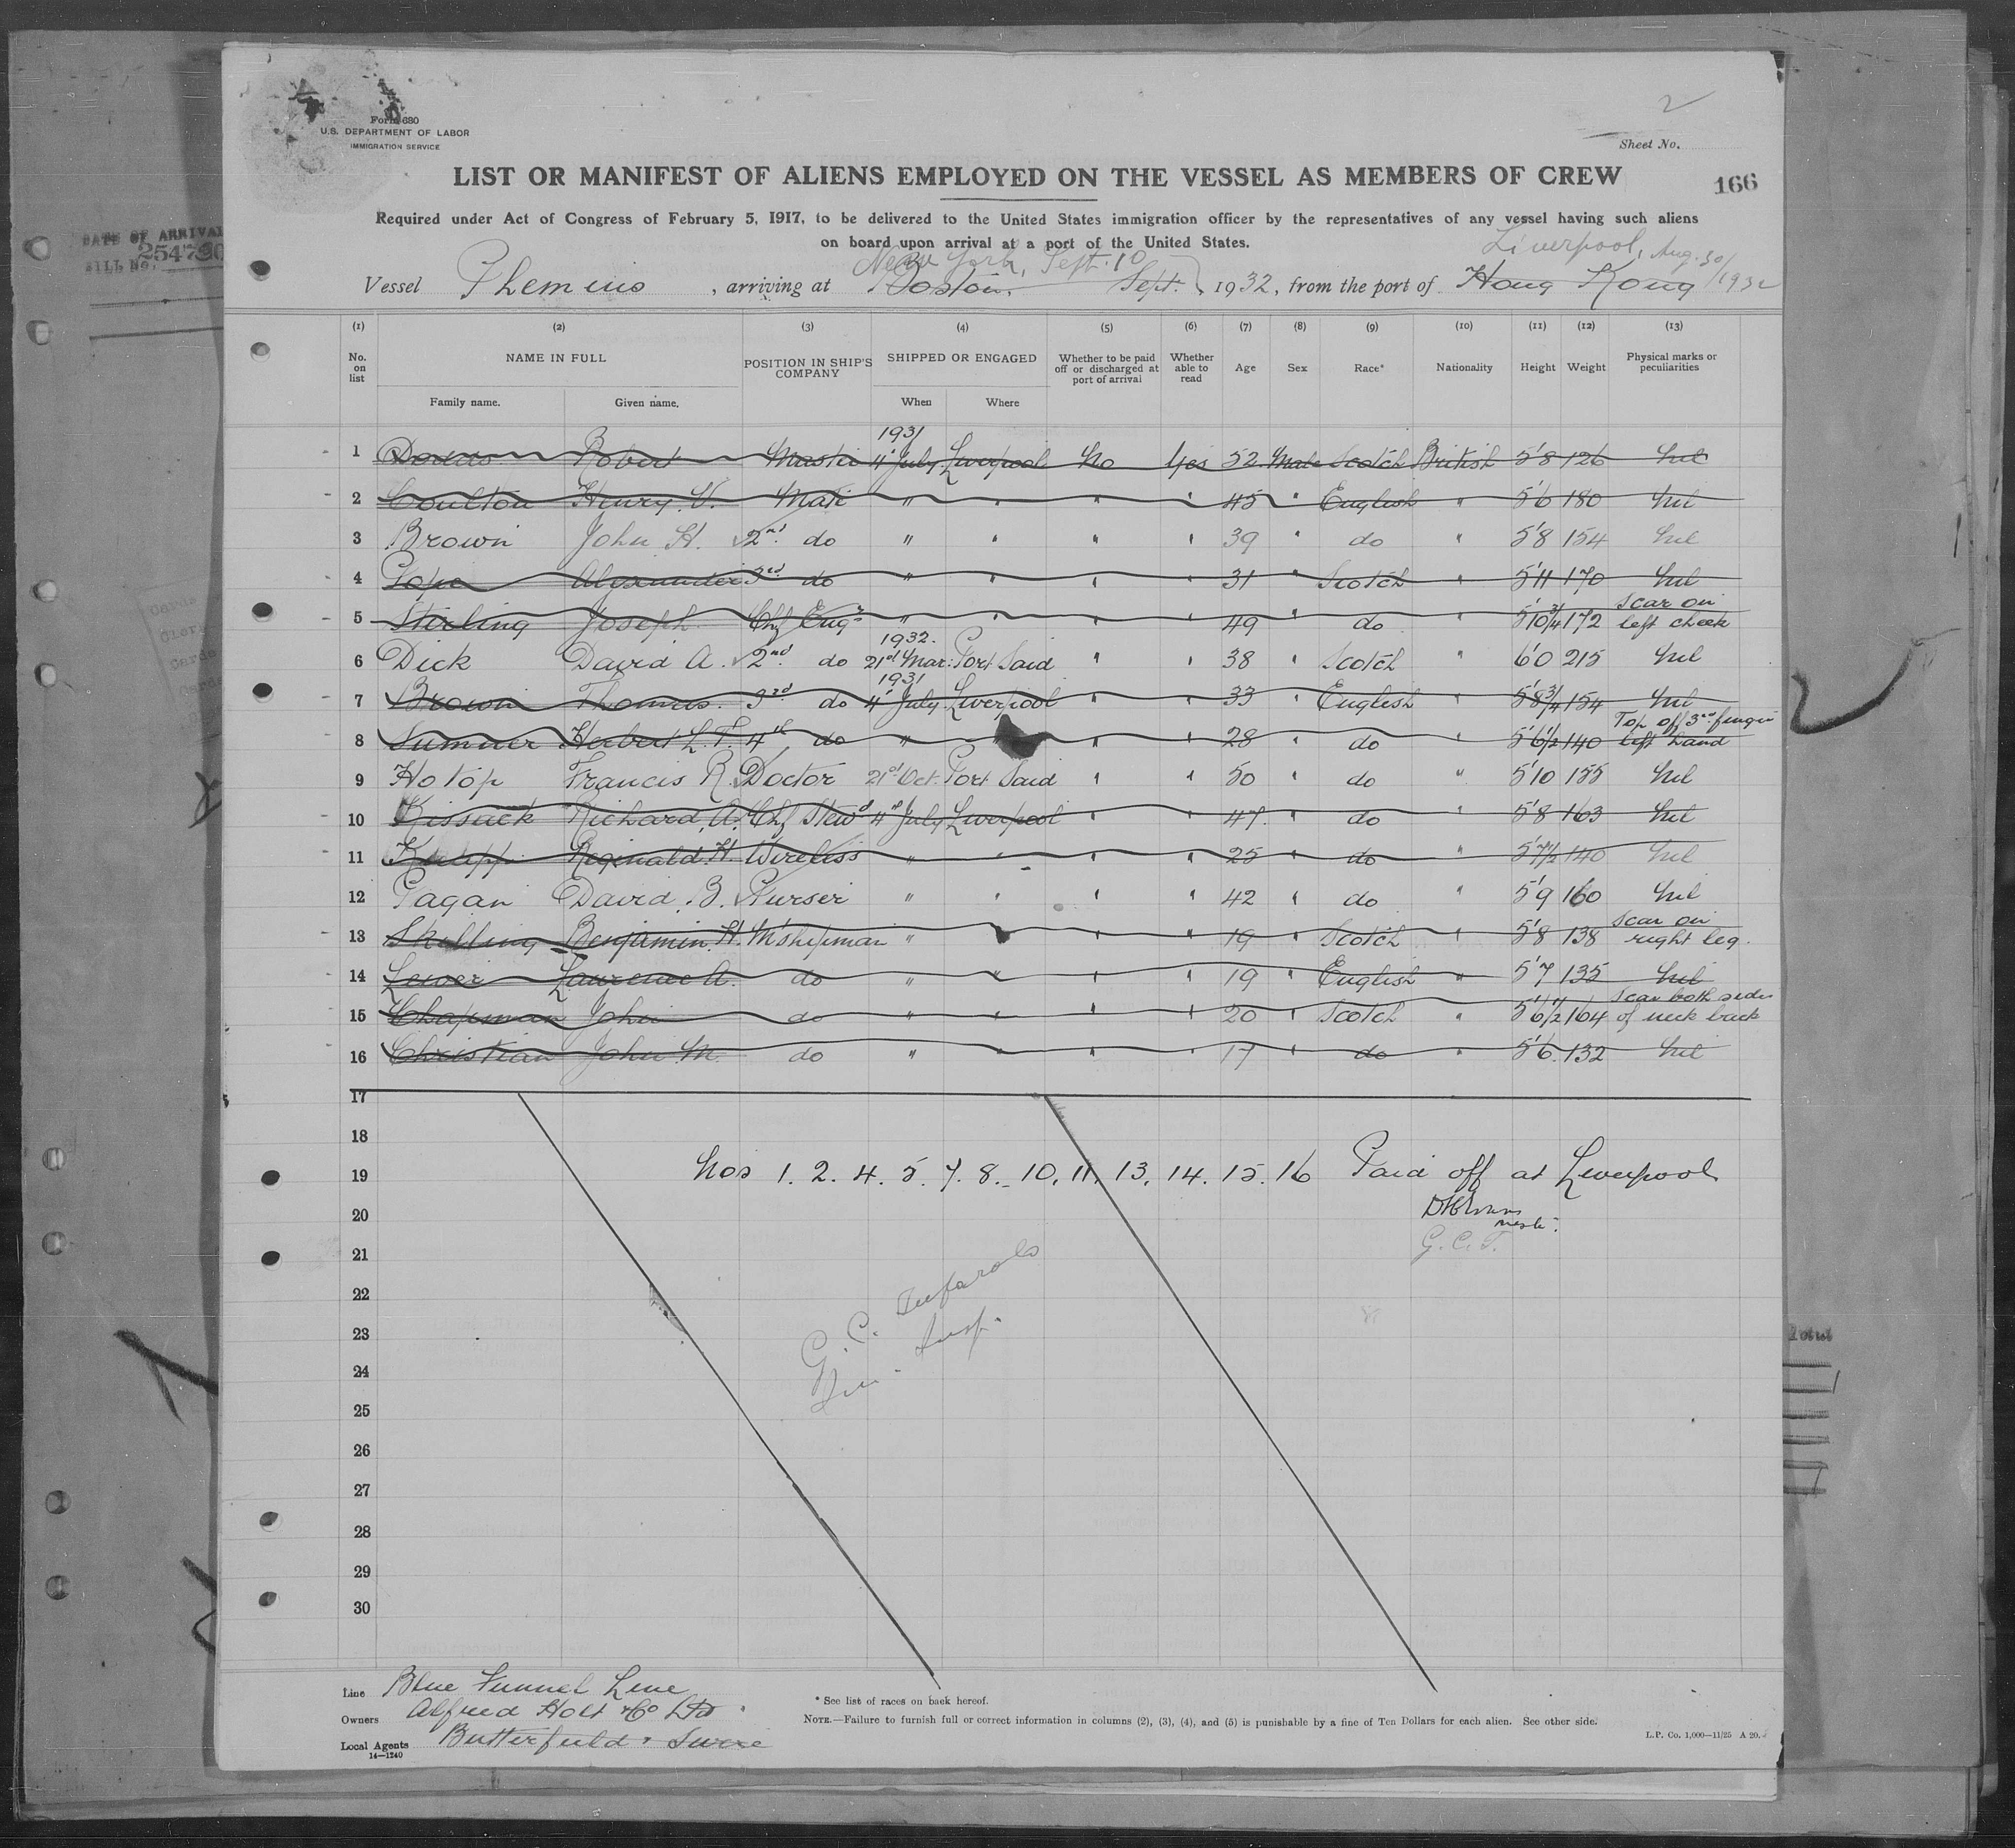 Form 680
U.S. DEPARTMENT OF LABOR
IMMIGRATION SERVICE
2
Sheet No.
LIST OR MANIFEST OF ALIENS EMPLOYED ON THE VESSEL AS MEMBERS OF CREW
166
Required under Act of Congress of February 5, 1917, to be delivered to the United States immigration officer by the representatives of any vessel having such aliens
on board upon arrival at a port of the United States.
DATE OF ARRIVAL
25479
BILL No.
New York, Sept. 10 Liverpool, Aug. 30/1932
Vessel Phemius, arriving at Boston, Sept. 1932, from the port of Hong Kong
(1) (2) (3) (4) (5) (6) (7) (8) (9) (10) (11) (12) (13)
No. on list NAME IN FULL POSITION IN SHIP'S COMPANY SHIPPED OR ENGAGED Whether to be paid off or discharged at port of arrival Whether able to read Age Sex Race* Nationality Height Weight Physical marks or peculiarities
Family name. Given name. When Where
1931
1 Robert Master 4" July Liverpool No Yes 52 Male Scotch British 5'8 126 Nil
2 Coulton Henry V. Mate " " " " 45 " English " 5'6 180 Nil
3 Brown John H. 2nd do " " " " 39 " do " 5'8 154 Nil
4 Alexander 3rd do " " " " 31 " Scotch " 5'11 170 Nil
5 Stirling Joseph Chf Engr " " " " 49 " do " 5'10 3/4 172 Scar on left cheek
1932.
6 Dick David A. 2nd do 21st Mar: Port Said " " 38 " Scotch " 6'0 215 Nil
1931
7 Brown Thomas. 3rd do 4" July Liverpool " " 33 " English " 5'8 3/4 154 Nil
8 Sumner Herbert L. F. 4th do " " " " 28 " do " 5'6 1/2 140 Top off 3rd finger left hand
9 Hotop Francis R. Doctor 21st Oct. Port Said " " 50 " do " 5'10 155 Nil
10 Kissack Richard A. Chf Stewd 4" July Liverpool " " 47 " do " 5'8 163 Nil
11 Reginald H. Wireless " " " " 25 " do " 5'7 1/2 140 Nil
12 Pagan David B. Purser " " " " 42 " do " 5'9 160 Nil
13 Skelling Benjamin H. M'shipman " " " " 19 " Scotch " 5'8 138 Scar on right leg.
14 Lewer Laurence A. do " " " " 19 " English " 5'7 135 Nil
15 Chapman John do " " " " 20 " Scotch " 5'6 1/2 164 Scar both sides of neck back
16 Christian John M. do " " " " 17 " do " 5'6. 132 Nil
17
18
19 Nos 1. 2. 4. 5. 7. 8. 10. 11. 13. 14. 15. 16 Paid off at Liverpool
20
21 G. C. T.
22
23 G. C.
24 Imm. Insp.
25
26
27
28
29
30
Line Blue Funnel Line
Owners Alfred Holt & Co Ltd
Local Agents Butterfield & Swire
14—1240
* See list of races on back hereof.
NOTE.—Failure to furnish full or correct information in columns (2), (3), (4), and (5) is punishable by a fine of Ten Dollars for each alien. See other side.
L.P. Co. 1,000—11/25 A 20.